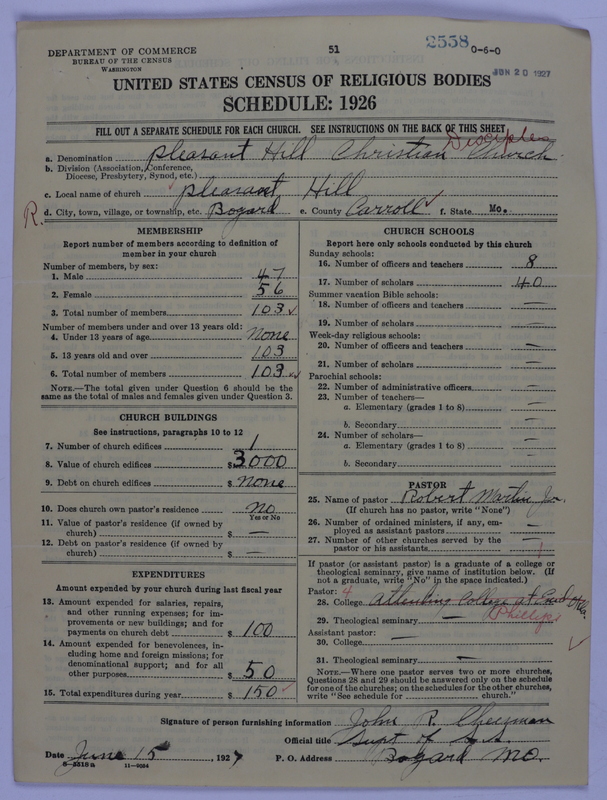 DEPARTMENT OF COMMERCE
BUREAU OF THE CENSUS
WASHINGTON
51
2558 0-6-0
JUN 20 1927
UNITED STATES CENSUS OF RELIGIOUS BODIES
SCHEDULE: 1926
FILL OUT A SEPARATE SCHEDULE FOR EACH CHURCH. SEE INSTRUCTIONS ON THE BACK OF THIS SHEET
Disciples
a. Denomination Pleasant Hill Christian Church
b. Division (Association, Conference, Diocese, Presbytery, Synod, etc.)
c. Local name of church Pleasant Hill
R. d. City, town, village, or township, etc. Bogard e. County Carroll ✓ f. State Mo.
MEMBERSHIP
Report number of members according to definition of
member in your church
Number of members, by sex:
1. Male 47
2. Female 56
3. Total number of members 103 ✓
Number of members under and over 13 years old:
4. Under 13 years of age None
5. 13 years old and over 103
6. Total number of members 103 ✓
NOTE.—The total given under Question 6 should be
same as the total of males and females given under Question 3.
CHURCH BUILDINGS
See instructions, paragraphs 10 to 12
7. Number of church edifices 1
8. Value of church edifices $3000
9. Debt on church edifices $ None
10. Does church own pastor's residence no
Yes or No
11. Value of pastor's residence (if owned by
church) $ —
12. Debt on pastor's residence (if owned by
church) $ —
EXPENDITURES
Amount expended by your church during last fiscal year
13. Amount expended for salaries, repairs,
and other running expenses; for im-
provements or new buildings; and for
payments on church debt $ 100
14. Amount expended for benevolences, in-
cluding home and foreign missions; for
denominational support; and for all
other purposes $ 50
15. Total expenditures during year $ 150 ✓
CHURCH SCHOOLS
Report here only schools conducted by this church
Sunday schools:
16. Number of officers and teachers 8
17. Number of scholars 40
Summer vacation Bible schools:
18. Number of officers and teachers —
19. Number of scholars —
Week-day religious schools:
20. Number of officers and teachers —
21. Number of scholars —
Parochial schools:
22. Number of administrative officers —
23. Number of teachers—
a. Elementary (grades 1 to 8) —
b. Secondary —
24. Number of scholars—
a. Elementary (grades 1 to 8) —
b. Secondary —
PASTOR
25. Name of pastor Robert Martin Jr.
(If church has no pastor, write "None")
26. Number of ordained ministers, if any, em-
ployed as assistant pastors —
27. Number of other churches served by the
pastor or his assistants —
If pastor (or assistant pastor) is a graduate of a college or
theological seminary, give name of institution below. (If
not a graduate, write "No" in the space indicated.)
Pastor: 4
28. College attending College at Enid Okla.
Phillips
29. Theological seminary —
Assistant pastor:
30. College —
✓
31. Theological seminary —
NOTE.—Where one pastor serves two or more churches,
Questions 28 and 29 should be answered only on the schedule
for one of the churches; on the schedules for the other churches,
write "See schedule for church."
Signature of person furnishing information John R.
Official title Supt of S.S.
Date June 15, 1927 P. O. Address Bogard Mo.
8-5518a 11-9094